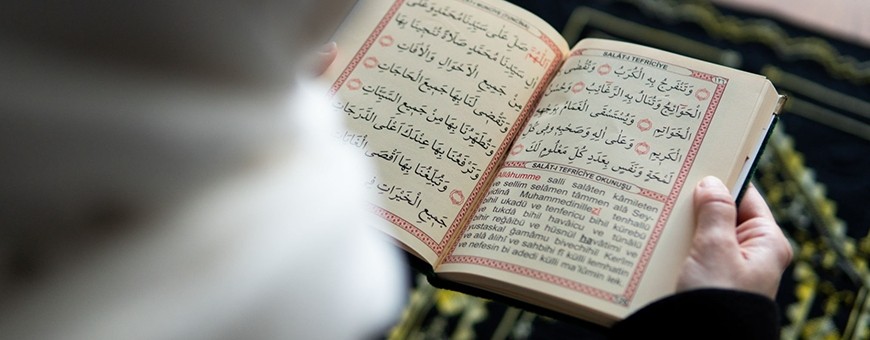 SALÂT-I TEFRİCİYE
وَتَنْفَرِجُ بِهِ الْكُرَبُ وَتُقْضَى بِهِ
الْحَوَائِجُ وَتُنَالُ بِهِ الرَّغَائِبُ وَحُسْنُ
الْخَوَاتِمِ وَيُسْتَسْقَى الْغَمَامُ بِوَجْهِهِ
الْكَرِيمِ وَعَلَى اٰلِهِ وَصَحْبِهِ فِى كُلِّ
لَمْحَةٍ وَنَفَسٍ بِعَدَدِ كُلِّ مَعْلُومٍ لَكَ
SALÂT-I TEFRİCİYE OKUNUŞU
salli salâten kâmileten
ve sellim selâmen tâmmen alâ Sey-
Muhammedinillezi tenhallu
bihil ukadü ve tenfericu bihil kürebü
ve tukdâ bihil havâicu ve tünâlü
bihir reğâibü ve hüsnül havâtimi ve
yustaskal ğamâmu bivechihil Kerîm
ve alâ âlihî ve sahbihî fî külli lemhatin
ve nefesin bi adedi külli ma'lûmin lek.
اَللّٰهُمَّ صَلِّ عَلَى سَيِّدِنَا مُحَمَّدٍ وَعَلَى
اٰلِ سَيِّدِنَا مُحَمَّدٍ صَلَاةً تُنْجِينَا بِهَا
مِنْ جَمِيعِ الْاَهْوَالِ وَالْاٰفَاتِ
وَتَقْضِى لَنَا بِهَا جَمِيعَ الْحَاجَاتِ
وَتُطَهِّرُنَا بِهَا مِنْ جَمِيعِ السَّيِّئَاتِ
وَتَرْفَعُنَا بِهَا عِنْدَكَ اَعْلَى الدَّرَجَاتِ
وَتُبَلِّغُنَا بِهَا اَقْصَى
جَمِيعِ الْخَيْرَاتِ فِى